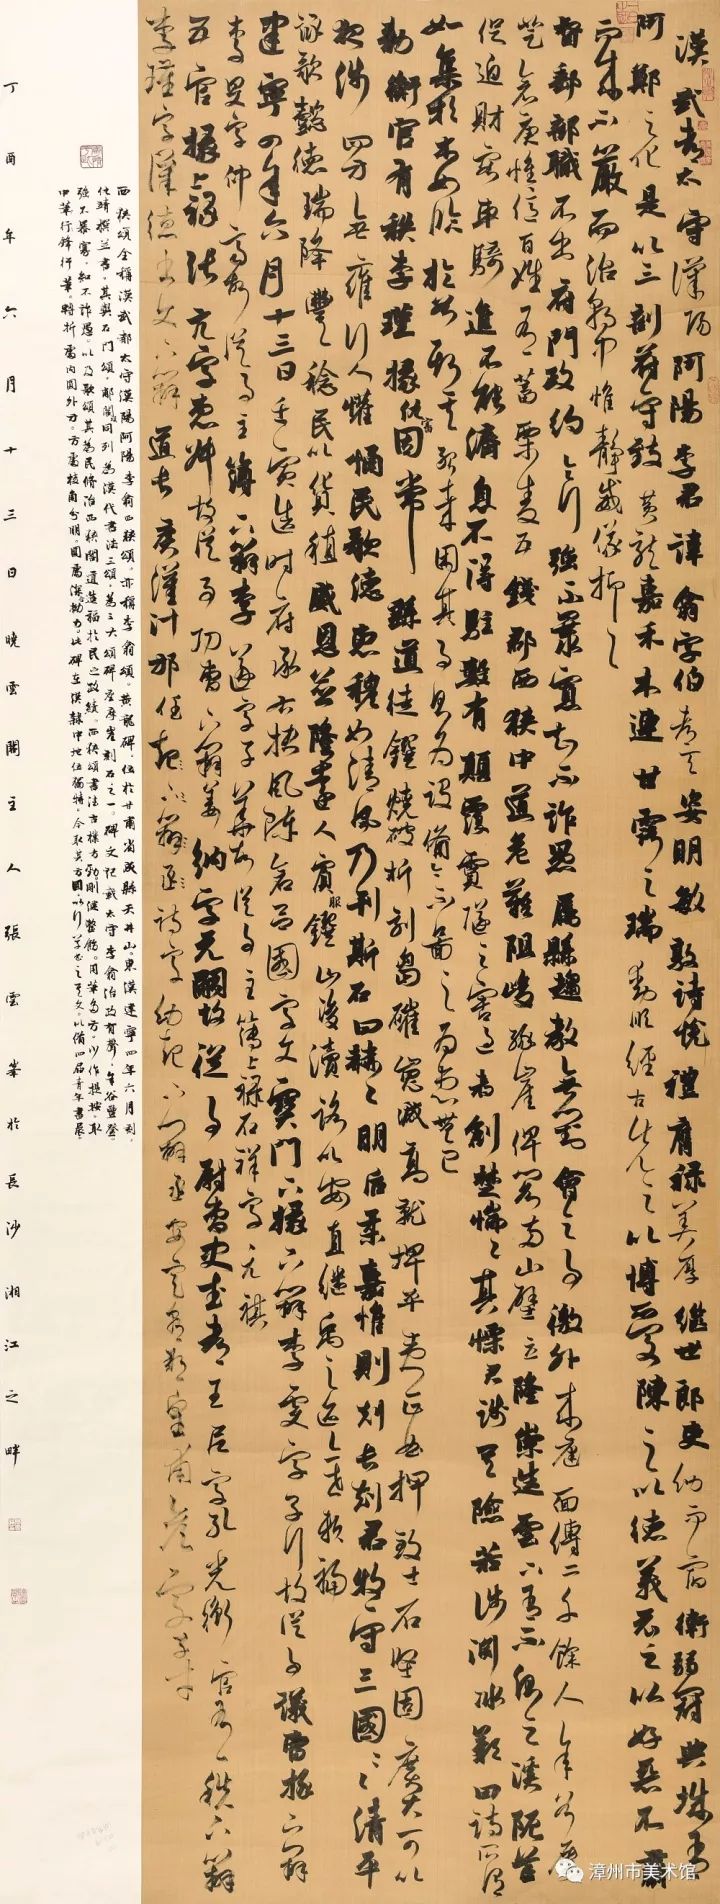 漢武都太守漢陽阿陽李君諱翕字伯都天姿明敏敦詩悅禮膺祿美厚繼世郎吏幼而宿衛弱冠典城有
阿鄭之化是以三剖符守致黃龍嘉禾木連甘露之瑞動順經古先之以博愛陳之以德義示之以好惡不肅
而成不嚴而治朝中惟靜威儀抑抑
督郵部職不出府門政約令行強不暴寡知不詐愚屬縣趨教無對會之事徼外來庭面縛二千餘人年穀屢
登倉庾惟億百姓有蓄粟麥五錢郡西狹中道危難阻峻緣崖俾閣兩山壁立隆崇造雲下有不測之溪阨笮
促迫財容車騎進不能濟息不得駐數有顛覆霣隧之害過者創楚惴惴其慄君踐其險若涉淵冰歎曰詩所謂
如集於木如臨於谷斯其殆哉困其事則為設備今不圖之為患無已
勑衡官有秩李瑾掾仇審因常繇道徒鐉燒破析刻臽磪嵬減高就埤平夷正曲柙致土石堅固廣大可以
夜涉四方無雍行人懽悀民歌德惠穆如清風乃刊斯石曰赫赫明后柔嘉惟則剋長剋君牧守三國三國清平
詠歌懿德瑞降豐稔民以貨稙威恩並隆遠人賓服鐉山浚瀆路以安直繼禹之迹亦世賴福
建寧四年六月十三日壬寅造時府丞右扶風陳倉呂國字文寶門下掾下辨李虔字子行故從事議曹掾下辨
李旻字仲齊故從事主簿下辨李遂字子華故從事主簿上祿石祥字元祺
五官掾上祿張亢字惠叔故從事功曹下辨姜納字元嗣故從事尉曹史武都王尼字孔光衡官有秩下辨
李瑾字漢德書文下辨道長廣漢汁邡任詩字幼起下辨丞安定朝那皇甫彥字子才
西狹頌全稱漢武都太守漢陽阿陽李翕西狹頌，亦稱李翕頌。黃龍碑，位於甘肅省成縣天井山。東漢建寧四年六月刻，
仇靖撰並書。其與石門頌，郙閣同列為漢代書法三頌，為三大頌碑摩崖刻石之一。碑文記武太守李翕治政有聲，年谷豐登，
強不暴寡，知不詐愚。以及歌頌其為民修治西狹閣道造福於民之政績。西狹頌書法古樸方勁，剛健整飭。用筆多方，少作提按，取
中華行鋒行筆，轉折處內圓外方。方處棱角分明。圓處渾勁力。此碑在漢隸中地位獨特，今取其方圓，以行草書之其文。以備四屆青年書展。
丁酉年六月十三日曉雲閣主人張雲峯於長沙湘江之畔
漳州市美术馆